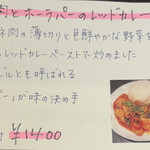 肉とホーラパーのレッドカレー
豚肉の薄切りと色鮮やかな野菜を
レッドカレーペーストで炒めました
ジルとも呼ばれる
パーが味の決め手
¥1400